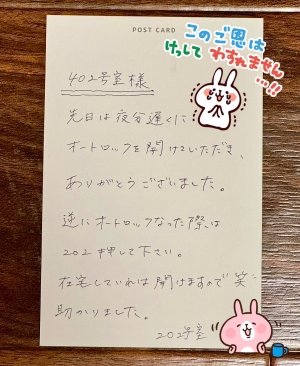 POST CARD
このご恩は
けっして わすれません
...!!
402号室様
先日は夜分遅くに
オートロックを開けていただき、
ありがとうございました。
逆にオートロックなった際は
202押して下さい。
在宅していれば開けますので笑
助かりました。
202号室